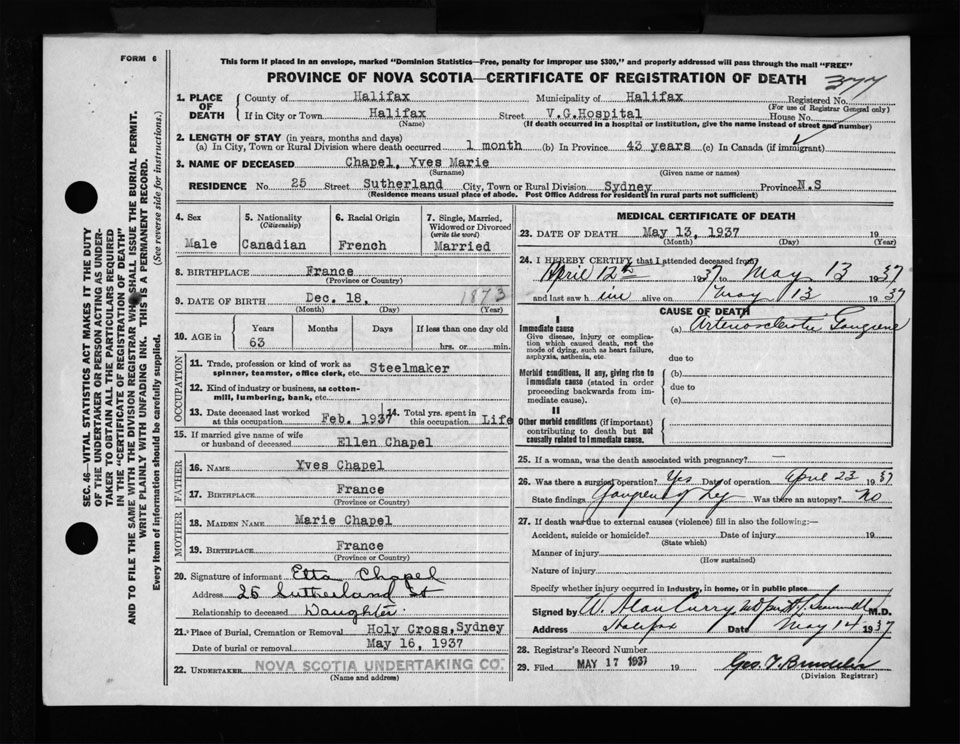 FORM 6
This form if placed in an envelope, marked "Dominion Statistics—Free, penalty for improper use $300," and properly addressed will pass through the mail "FREE"
PROVINCE OF NOVA SCOTIA—CERTIFICATE OF REGISTRATION OF DEATH
377
1. PLACE OF DEATH
County of Halifax Municipality of Halifax Registered No.
(For use of Registrar General only)
If in City or Town Halifax Street V.G.Hospital House No.
(Name) (If death occurred in a hospital or institution, give the name instead of street and number)
2. LENGTH OF STAY (in years, months and days)
(a) In City, Town or Rural Division where death occurred 1 month (b) In Province 43 years (c) In Canada (if immigrant)
3. NAME OF DECEASED Chapel, Yves Marie
(Surname) (Given name or names)
RESIDENCE No. 25 Street Sutherland City, Town or Rural Division Sydney Province N.S
(Residence means usual place of abode. Post Office Address for residents in rural parts not sufficient)
4. Sex Male
5. Nationality (Citizenship) Canadian
6. Racial Origin French
7. Single, Married, Widowed or Divorced (write the word) Married
8. BIRTHPLACE France
(Province or Country)
9. DATE OF BIRTH Dec. 18, 1873
(Month) (Day) (Year)
10. AGE in Years Months Days If less than one day old
63 hrs. or min.
OCCUPATION
11. Trade, profession or kind of work as spinner, teamster, office clerk, etc. Steelmaker
12. Kind of industry or business, as cotton-mill, lumbering, bank, etc.
13. Date deceased last worked at this occupation Feb. 1937
14. Total yrs. spent in this occupation Life
15. If married give name of wife or husband of deceased Ellen Chapel
FATHER
16. NAME Yves Chapel
17. BIRTHPLACE France
(Province or Country)
MOTHER
18. MAIDEN NAME Marie Chapel
19. BIRTHPLACE France
(Province or Country)
20. Signature of informant Etta Chapel
Address 25 Sutherland St
Relationship to deceased Daughter.
21. Place of Burial, Cremation or Removal Holy Cross, Sydney
Date of burial or removal May 16, 1937
22. UNDERTAKER NOVA SCOTIA UNDERTAKING CO.
(Name and address)
MEDICAL CERTIFICATE OF DEATH
23. DATE OF DEATH May 13, 1937 19
(Month) (Day) (Year)
24. I HEREBY CERTIFY that I attended deceased from
April 12th 1937 to May 13 1937
and last saw him alive on May 13 1937
CAUSE OF DEATH
I
Immediate cause (a) Arteriosclerotic Gangrene
Give disease, injury or complication which caused death, not the mode of dying, such as heart failure, asphyxia, asthenia, etc.
due to
Morbid conditions, if any, giving rise to immediate cause (stated in order proceeding backwards from immediate cause).
(b)
due to
(c)
II
Other morbid conditions (if important) contributing to death but not causally related to immediate cause.
25. If a woman, was the death associated with pregnancy? —
26. Was there a surgical operation? Yes Date of operation April 23 1937
State findings Gangrene of Leg Was there an autopsy? No
27. If death was due to external causes (violence) fill in also the following:—
Accident, suicide or homicide? Date of injury 19
(State which)
Manner of injury
(How sustained)
Nature of injury
Specify whether injury occurred in industry, in home, or in public place
Signed by W. Alan Curry M.D.
Address Halifax Date May 14 1937
28. Registrar's Record Number
29. Filed MAY 17 1937 19
(Division Registrar)
SEC. 46—VITAL STATISTICS ACT MAKES IT THE DUTY
OF THE UNDERTAKER OR PERSON ACTING AS UNDER-
TAKER TO OBTAIN ALL THE PARTICULARS REQUIRED
IN THE "CERTIFICATE OF REGISTRATION OF DEATH"
AND TO FILE THE SAME WITH THE DIVISION REGISTRAR WHO SHALL ISSUE THE BURIAL PERMIT.
WRITE PLAINLY WITH UNFADING INK. THIS IS A PERMANENT RECORD.
Every item of information should be carefully supplied. (See reverse side for instructions.)